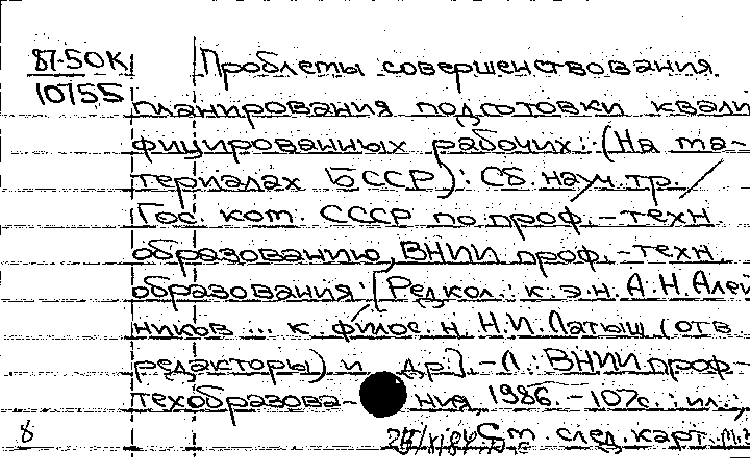 87-50К Проблемы совершенствования
10155 планирования подготовки квали
фицированных рабочих: (На ма-
териалах БССР): Сб. науч. тр. /
Гос. ком. СССР по проф.-техн.
образованию, ВНИИ проф.-техн.
образования; [Редкол.: к.э.н. А.Н. Алей
ников ... к. филос. н. Н.И. Латыш (отв.
редакторы) и др.]. - Л.: ВНИИ проф-
техобразова- ния, 1986. - 107с.: ил.;
8 См. след. карт.